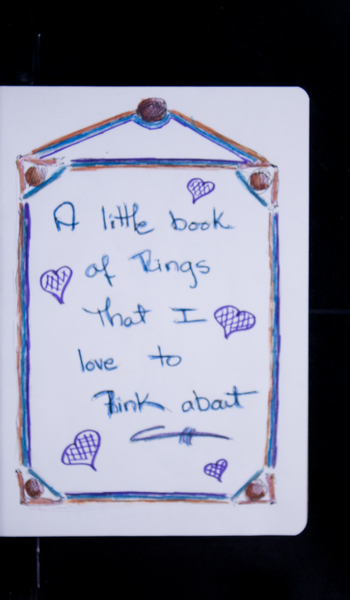 A little book
of Things
that I
love to
Think about